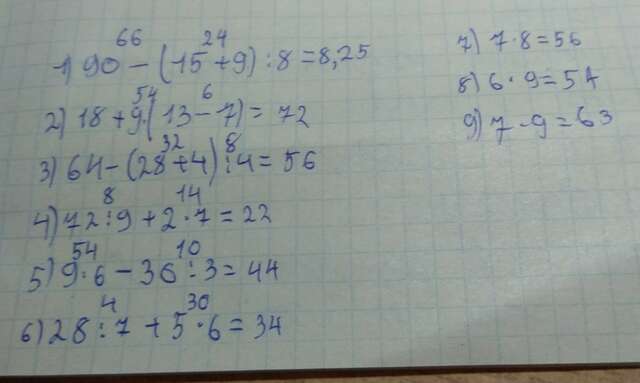 66 24
1) 90 - (15 + 9) : 8 = 8,25
54 6
2) 18 + 9·(13 - 7) = 72
32 8
3) 64 - (28 + 4) : 4 = 56
8 14
4) 72 : 9 + 2 · 7 = 22
54 10
5) 9 · 6 - 36 : 3 = 44
4 30
6) 28 : 7 + 5 · 6 = 34
7) 7 · 8 = 56
8) 6 · 9 = 54
9) 7 · 9 = 63